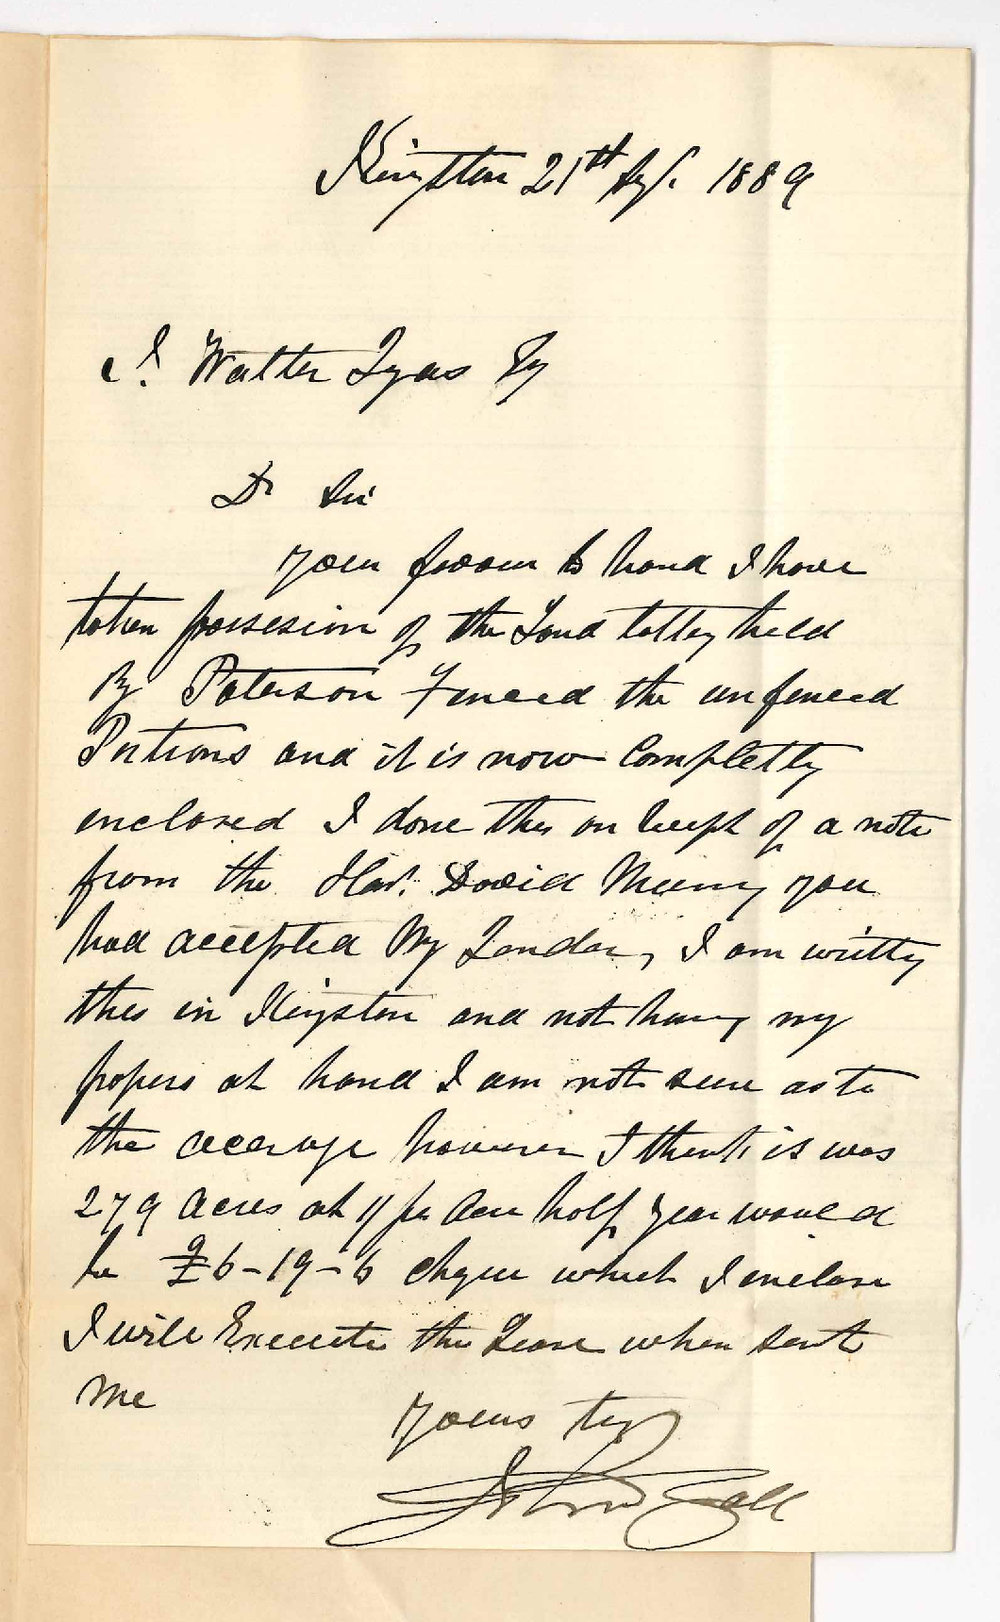 Kingston 21th Sep. 1889
J. Walter Tyas Esq
Dr Sir
Your favour to hand I have
taken possesion of the Land lattly held
By Paterson Fenced the unfenced
Portions and it is now Completly
enclosed I done this on Receipt of a note
from the Hon. David Murray you
had accepted My Tender, I am writty
this in Kingston and not having my
papers at hand I am not sure as to
the accerage however I think it was
279 Acres at 1/ per Acre half year would
be £6-19-6 cheque which I enclose
I will Execute the Lease when sent
Me
Yours try